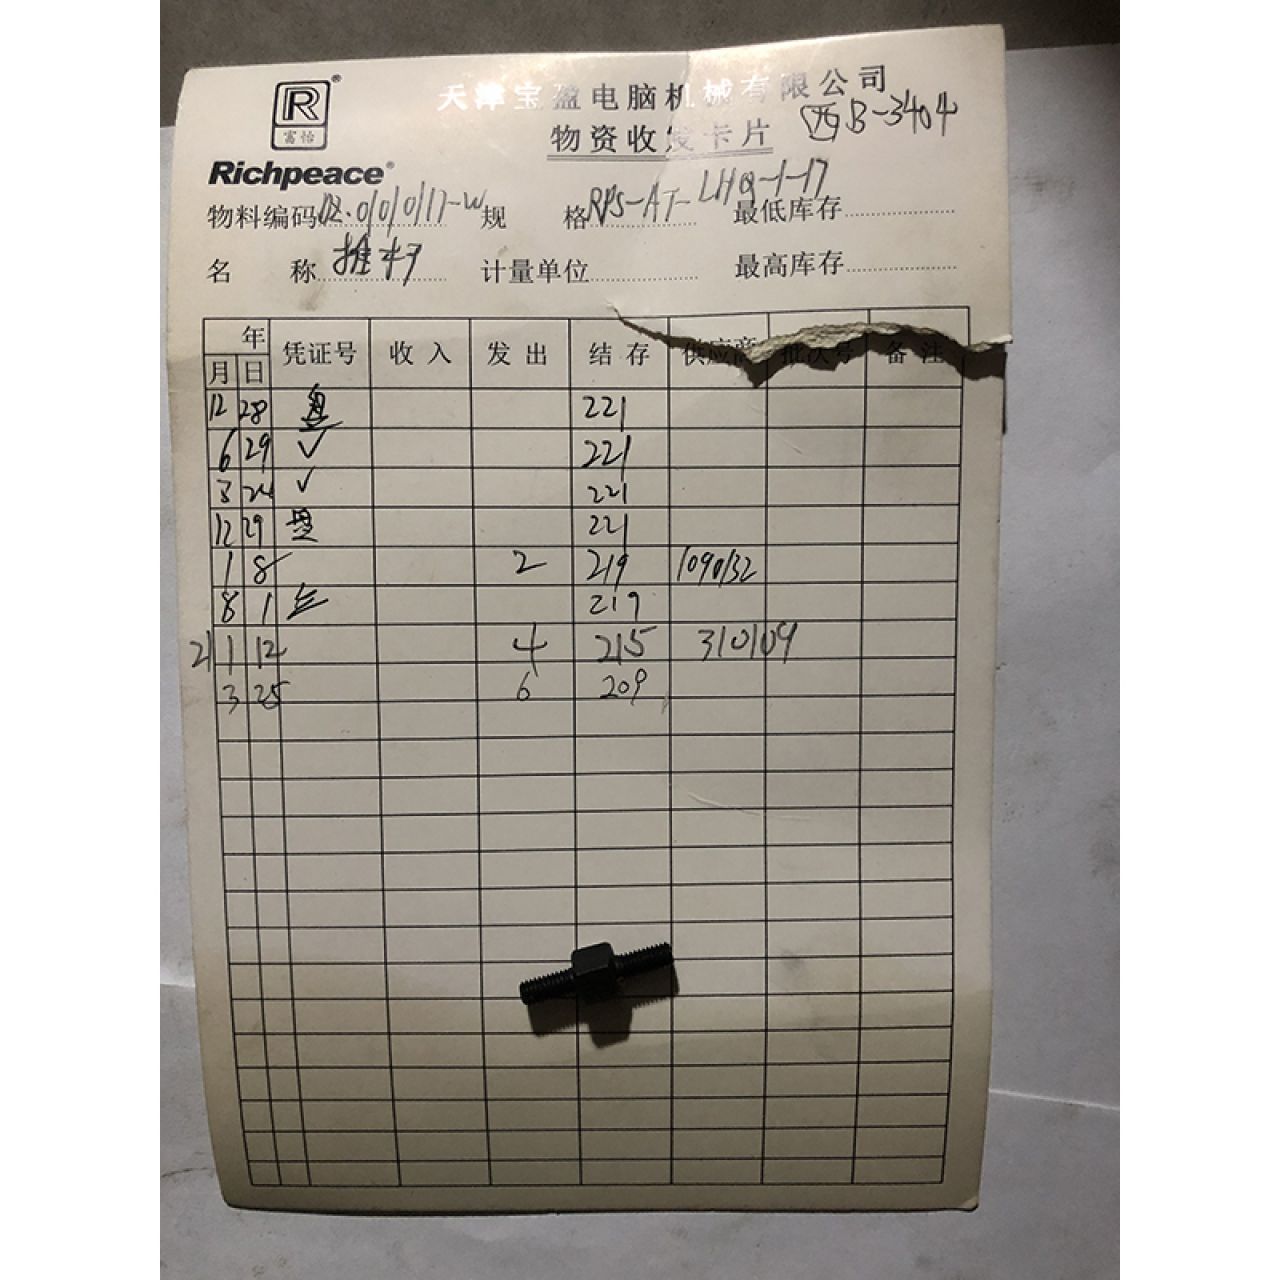 R®
富怡
Richpeace®
天津宝盈电脑机械有限公司
物资收发卡片 西B-3404
物料编码 12.0101017-W 规 格 RPS-AT-LHQ-1-17 最低库存
名 称 推杆 计量单位 最高库存
年
月 日 凭证号 收入 发出 结存 供应商 批次号 备注
12 28 盘 221
6 29 ✓ 221
3 24 ✓ 221
12 29 盘 221
1 8 2 219 1090132
8 1 219
21 1 12 4 215 310109
3 25 6 209